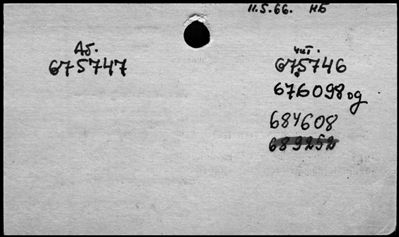 11.5.66. НБ
Аб.
675747
чит.
675746
676098 og
684608
689252